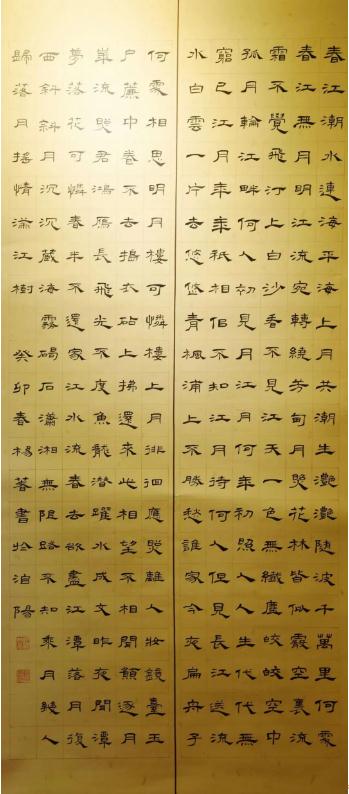 春江潮水連海平海上月共潮生灩灩隨波千萬里何處
春江無月明江流宛轉繞芳甸月照花林皆似霰空裏流
霜不覺飛汀上白沙看不見江天一色無纖塵皎皎空中
孤月輪江畔何人初見月江月何年初照人人生代代無
窮已江月年年祇相似不知江月待何人但見長江送流
水白雲一片去悠悠青楓浦上不勝愁誰家今夜扁舟子
何處相思明月樓可憐樓上月徘徊應照離人妝鏡臺玉
戶簾中卷不去擣衣砧上拂還來此相望不相聞願逐月
華流照君鴻鴈長飛光不度魚龍潛躍水成文昨夜閒潭
夢落花可憐春半不還家江水流春去欲盡江潭落月復
西斜斜月沉沉藏海霧碣石瀟湘無限路不知乘月幾人
歸落月搖情滿江樹 癸卯春楊書於洎陽